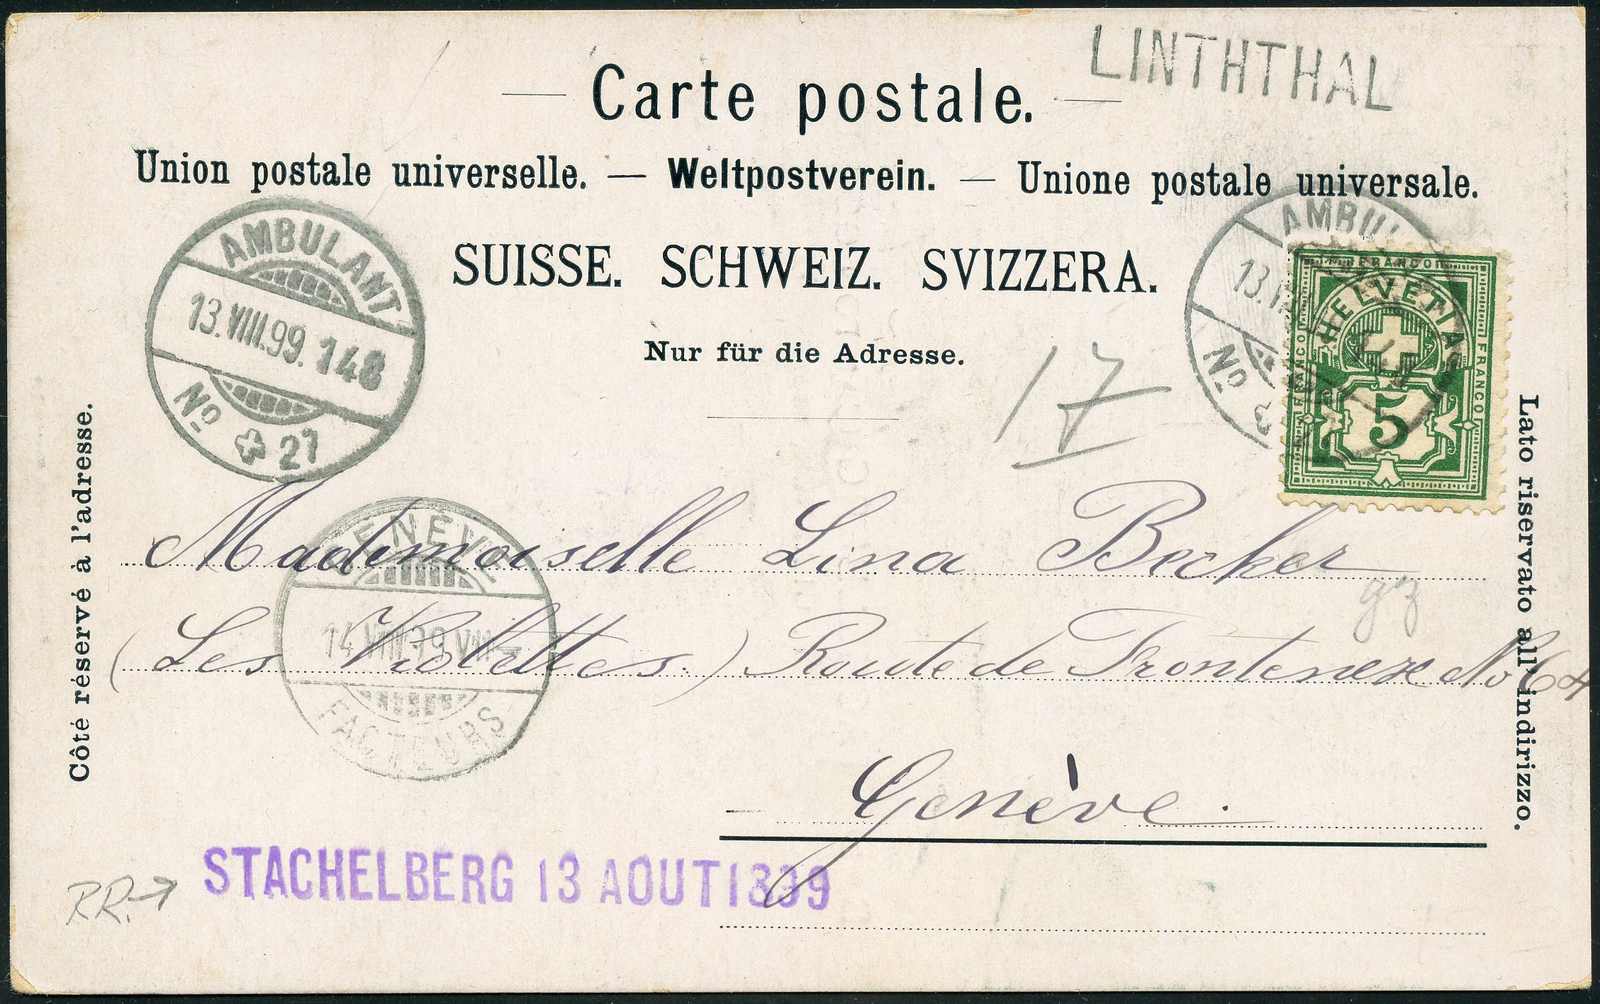 LINTHTHAL
Carte postale.
Union postale universelle. — Weltpostverein. — Unione postale universale.
SUISSE. SCHWEIZ. SVIZZERA.
Nur für die Adresse.
AMBULANT
13.VIII.99. 148
No 21
AMBU
13.V
No
FRANCO
HELVETIA
FRANCO
FRANCO
5
17
Côté réservé à l'adresse.
Lato riservato all' indirizzo.
GENEVE
14.VIII.99.VIII
FACTEURS
Mademoiselle Lina Becker
gz
(Les Violettes.) Route de Frontenex No 64
Genève.
RR. → STACHELBERG 13 AOUT 1899